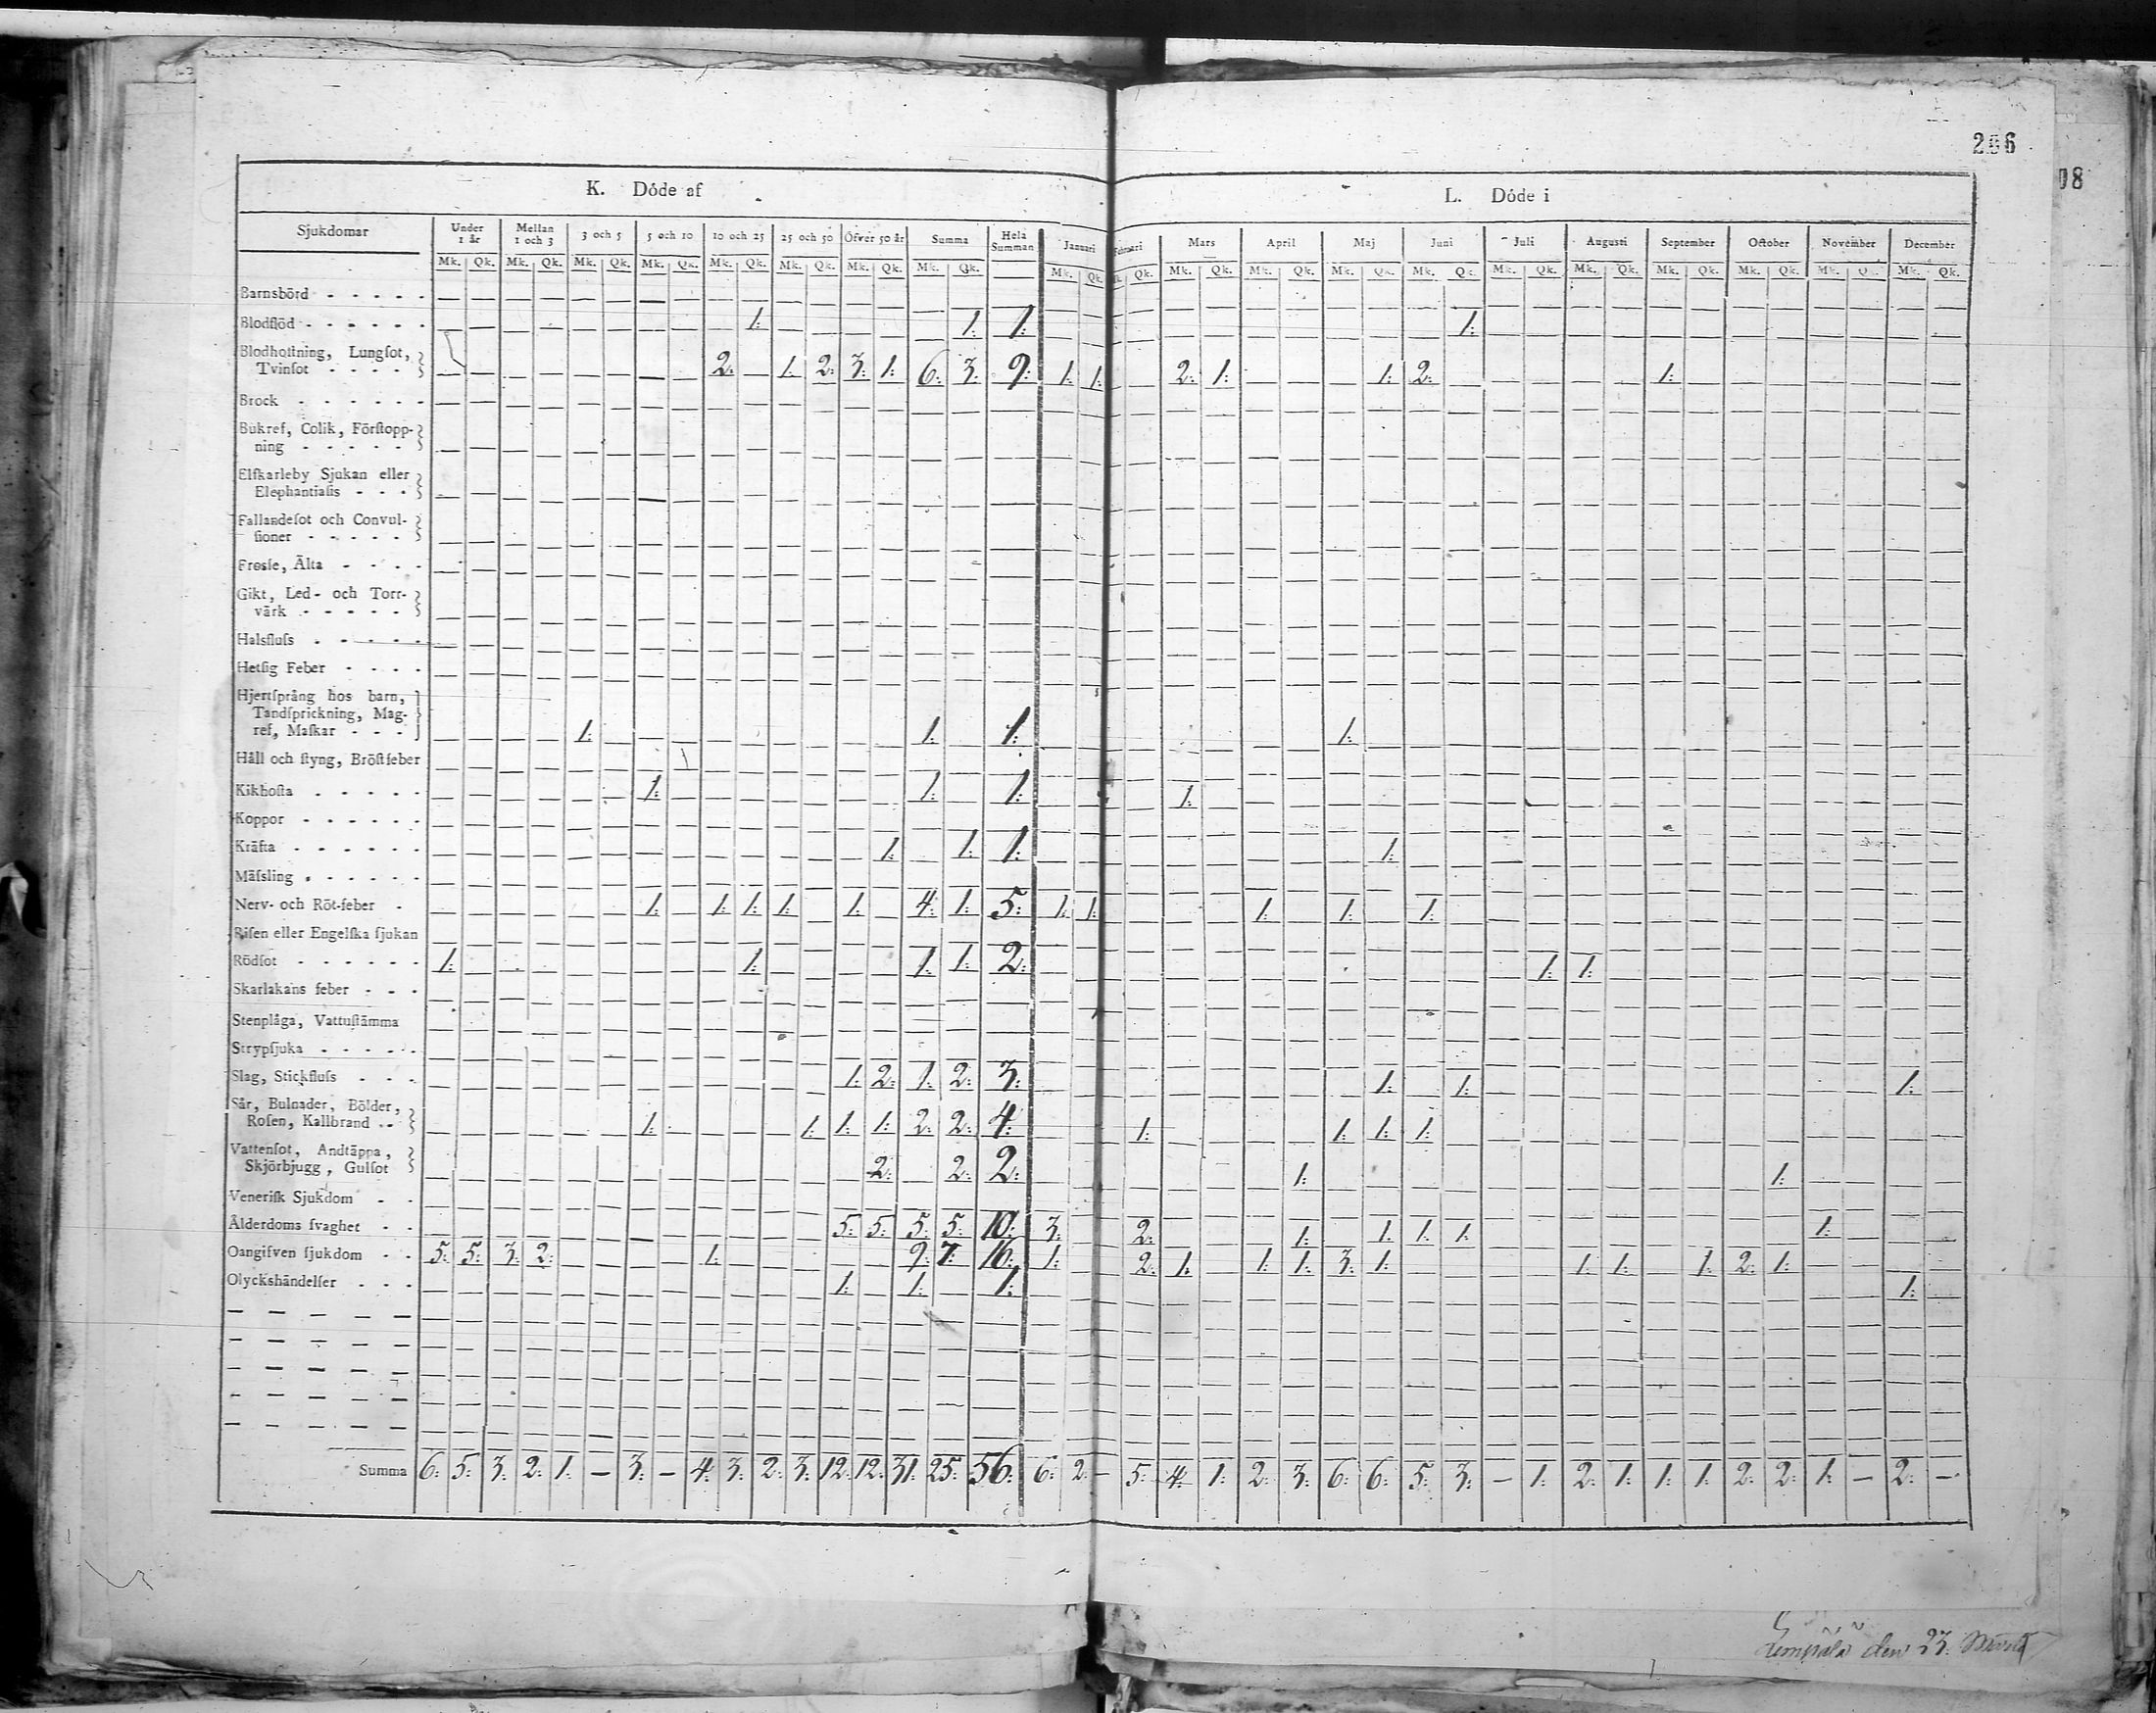 266
08
K. Döde af
L. Döde i
Sjukdomar Under 1 år Mellan 1 och 3 3 och 5 5 och 10 10 och 25 25 och 50 Öfver 50 år Summa Hela Summan Januari Februari Mars April Maj Juni Juli Augusti September October November December
Mk. Qk. Mk. Qk. Mk. Qk. Mk. Qk. Mk. Qk. Mk. Qk. Mk. Qk. Mk. Qk. Mk. Qk. Qk. Mk. Qk. Mk. Qk. Mk. Qk. Mk. Qk. Mk. Qk. Mk. Qk. Mk. Qk. Mk. Qk. Mk. Qk. Mk. Qk.
Barnsbörd - - - - -
Blodflöd - - - - - - 1: 1: 1: 1:
Blodhostning, Lungſot,
Tvinſot - - - - 2: 1: 2: 3: 1: 6: 3: 9: 1: 1: 2: 1: 1: 2: 1:
Brock - - - - - -
Bukref, Colik, Förſtopp-
ning - - - - -
Elfkarleby Sjukan eller
Elephantiaſis - - -
Fallandeſot och Convul-
ſioner - - - - -
Frosſe, Älta - - - -
Gikt, Led- och Torr-
värk - - - - -
Halsfluſs - - - - -
Hetſig Feber - - - -
Hjertſprång hos barn,
Tandſprickning, Mag-
ref, Maſkar - - - 1: 1: 1: 1:
Håll och ſtyng, Bröſtfeber
Kikhoſta - - - - - 1: 1: 1: 1:
Koppor - - - - - -
Kräfta - - - - - - 1: 1: 1: 1:
Mäſsling - - - - - -
Nerv- och Röt-feber - 1: 1: 1: 1: 1: 4: 1: 5: 1: 1: 1: 1: 1:
Riſen eller Engelſka ſjukan
Rödſot - - - - - - 1: 1: 1: 1: 2: 1: 1:
Skarlakans feber - - -
Stenplåga, Vattuſtämma
Strypſjuka - - - - -
Slag, Stickfluſs - - - 1: 2: 1: 2: 3: 1: 1: 1:
Sår, Bulnader, Bölder,
Roſen, Kallbrand - - 1: 1: 1: 1: 2: 2: 4: 1: 1: 1: 1:
Vattenſot, Andtäppa,
Skjörbjugg, Gulſot 2: 2: 2: 1: 1:
Veneriſk Sjukdom - -
Ålderdoms ſvaghet - - 5: 5: 5: 5: 10: 3: 2: 1: 1: 1: 1: 1:
Oangifven ſjukdom - - 5: 5: 3: 2: 1: 9: 7: 16: 1: 2: 1: 1: 1: 3: 1: 1: 1: 1: 2: 1:
Olyckshändelſer - - - 1: 1: 1: 1:
Summa 6: 5: 3: 2: 1: – 3: – 4: 3: 2: 3: 12: 12: 31: 25: 56: 6: 2: – 5: 4: 1: 2: 3: 6: 6: 5: 3: – 1: 2: 1: 1: 1: 2: 2: 1: – 2: –
den 23.